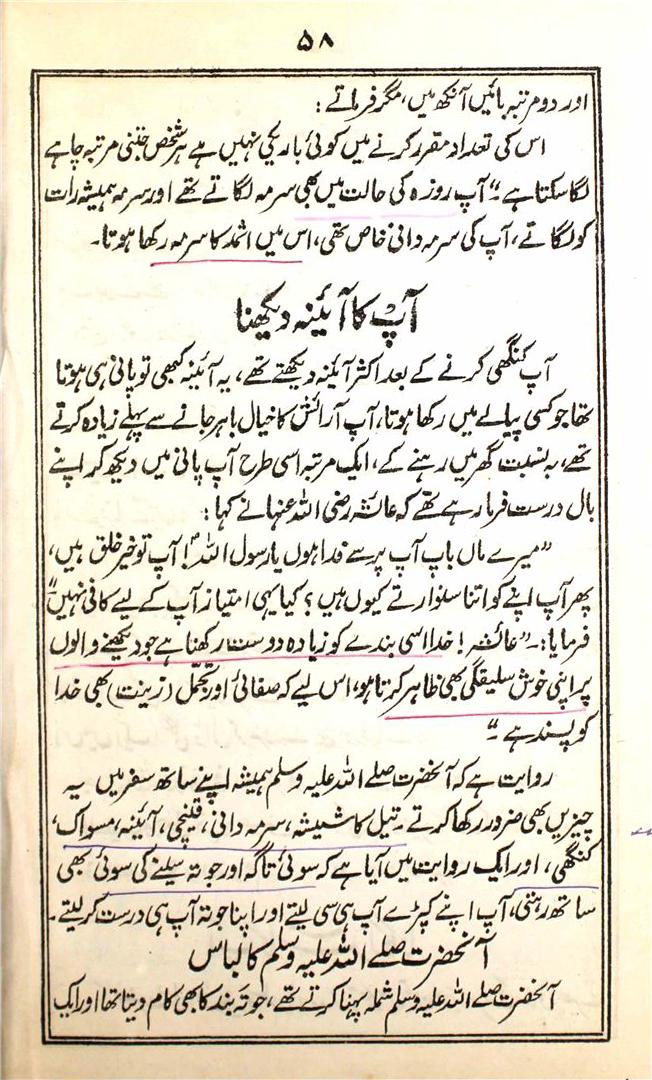 ۵۸
اور دو مرتبہ بائیں آنکھ میں، مگر فرماتے :
اس کی تعداد مقرر کرنے میں کوئی باریکی نہیں ہے ہر شخص جتنی مرتبہ چاہے
لگا سکتا ہے۔" آپ روزہ کی حالت میں بھی سرمہ لگاتے تھے اور سرمہ ہمیشہ رات
کو لگاتے، آپ کی سرمہ دانی خاص تھی، اس میں اثمد کا سرمہ رکھا ہوتا۔
آپؐ کا آئینہ دیکھنا
آپ کنگھی کرنے کے بعد اکثر آئینہ دیکھتے تھے، یہ آئینہ کبھی تو پانی ہی ہوتا
تھا جو کسی پیالے میں رکھا ہوتا، آپ آرائش کا خیال باہر جانے سے پہلے زیادہ کرتے
تھے، بہ نسبت گھر میں رہنے کے، ایک مرتبہ اسی طرح آپ پانی میں دیکھ کر اپنے
بال درست فرما رہے تھے کہ عائشہ رضی اللہ عنہا نے کہا :
"میرے ماں باپ آپ پر سے فدا ہوں یا رسول اللہؐ ! آپ تو خیر خلق ہیں،
پھر آپ اپنے کو اتنا سنوارتے کیوں ہیں ؟ کیا یہی امتیاز آپ کے لیے کافی نہیں"
فرمایا :۔ "عائشہ ! خدا اسی بندے کو زیادہ دوست رکھتا ہے جو دیکھنے والوں
پر اپنی خوش سلیقگی بھی ظاہر کرتا ہو، اس لیے کہ صفائی اور تجمّل (زینت) بھی خدا
کو پسند ہے۔"
روایت ہے کہ آنحضرت صلے اللہ علیہ وسلم ہمیشہ اپنے ساتھ سفر میں یہ
چیزیں بھی ضرور رکھا کرتے۔ تیل کا شیشہ، سرمہ دانی، قینچی، آئینہ، مسواک،
کنگھی، اور ایک روایت میں آیا ہے کہ سوئی تاگہ اور جوتہ سیلنے کی سوئی بھی
ساتھ رہتی، آپ اپنے کپڑے آپ ہی سی لیتے اور اپنا جوتہ آپ ہی درست کر لیتے۔
آنحضرت صلے اللہ علیہ وسلم کا لباس
آنحضرت صلے اللہ علیہ وسلم شملہ پہنا کرتے تھے، جو تہ بند کا بھی کام دیتا تھا اور ایک